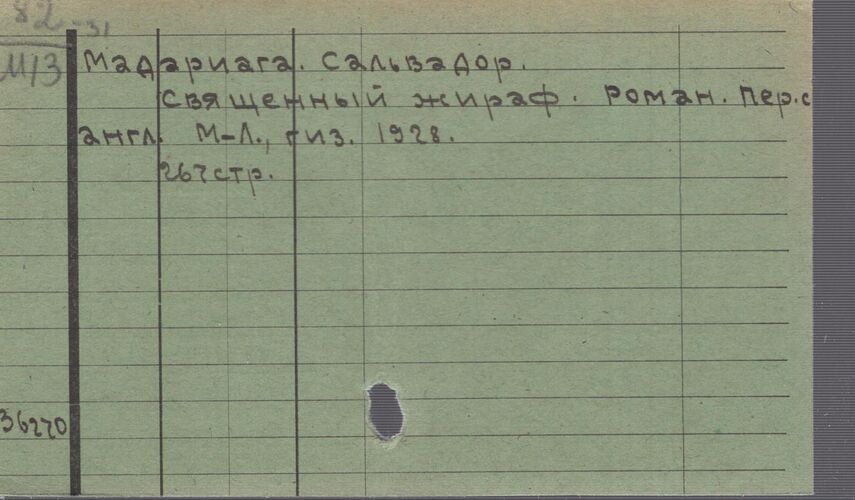 82-31
М13
Мадариага. Сальвадор.
Священный жираф. Роман. Пер.с
англ. М-Л., гиз. 1928.
267стр.
36270